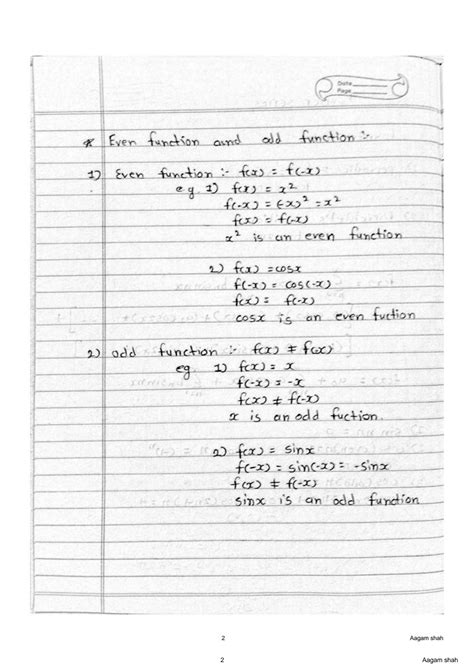 Date
Page
* Even function and odd function :-
1) Even function :- f(x) = f(-x)
eg. 1) f(x) = x²
f(-x) = (-x)² = x²
f(x) = f(-x)
x² is an even function
2) f(x) = cosx
f(-x) = cos(-x)
f(x) = f(-x)
cosx is an even fuction
2) odd function :- f(x) ≠ f(x)
eg. 1) f(x) = x
f(-x) = -x
f(x) ≠ f(-x)
x is an odd fuction.
2) f(x) = sinx
f(-x) = sin(-x) = -sinx
f(x) ≠ f(-x)
sinx is an odd function
2 Aagam shah
2 Aagam shah